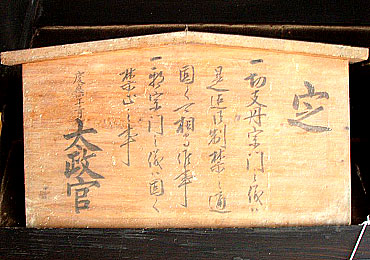 定
一切支丹宗門之儀ハ
是迄御制禁之通
固く可相守事
一邪宗門之儀ハ固く
禁止之事
慶応四年三月
太政官